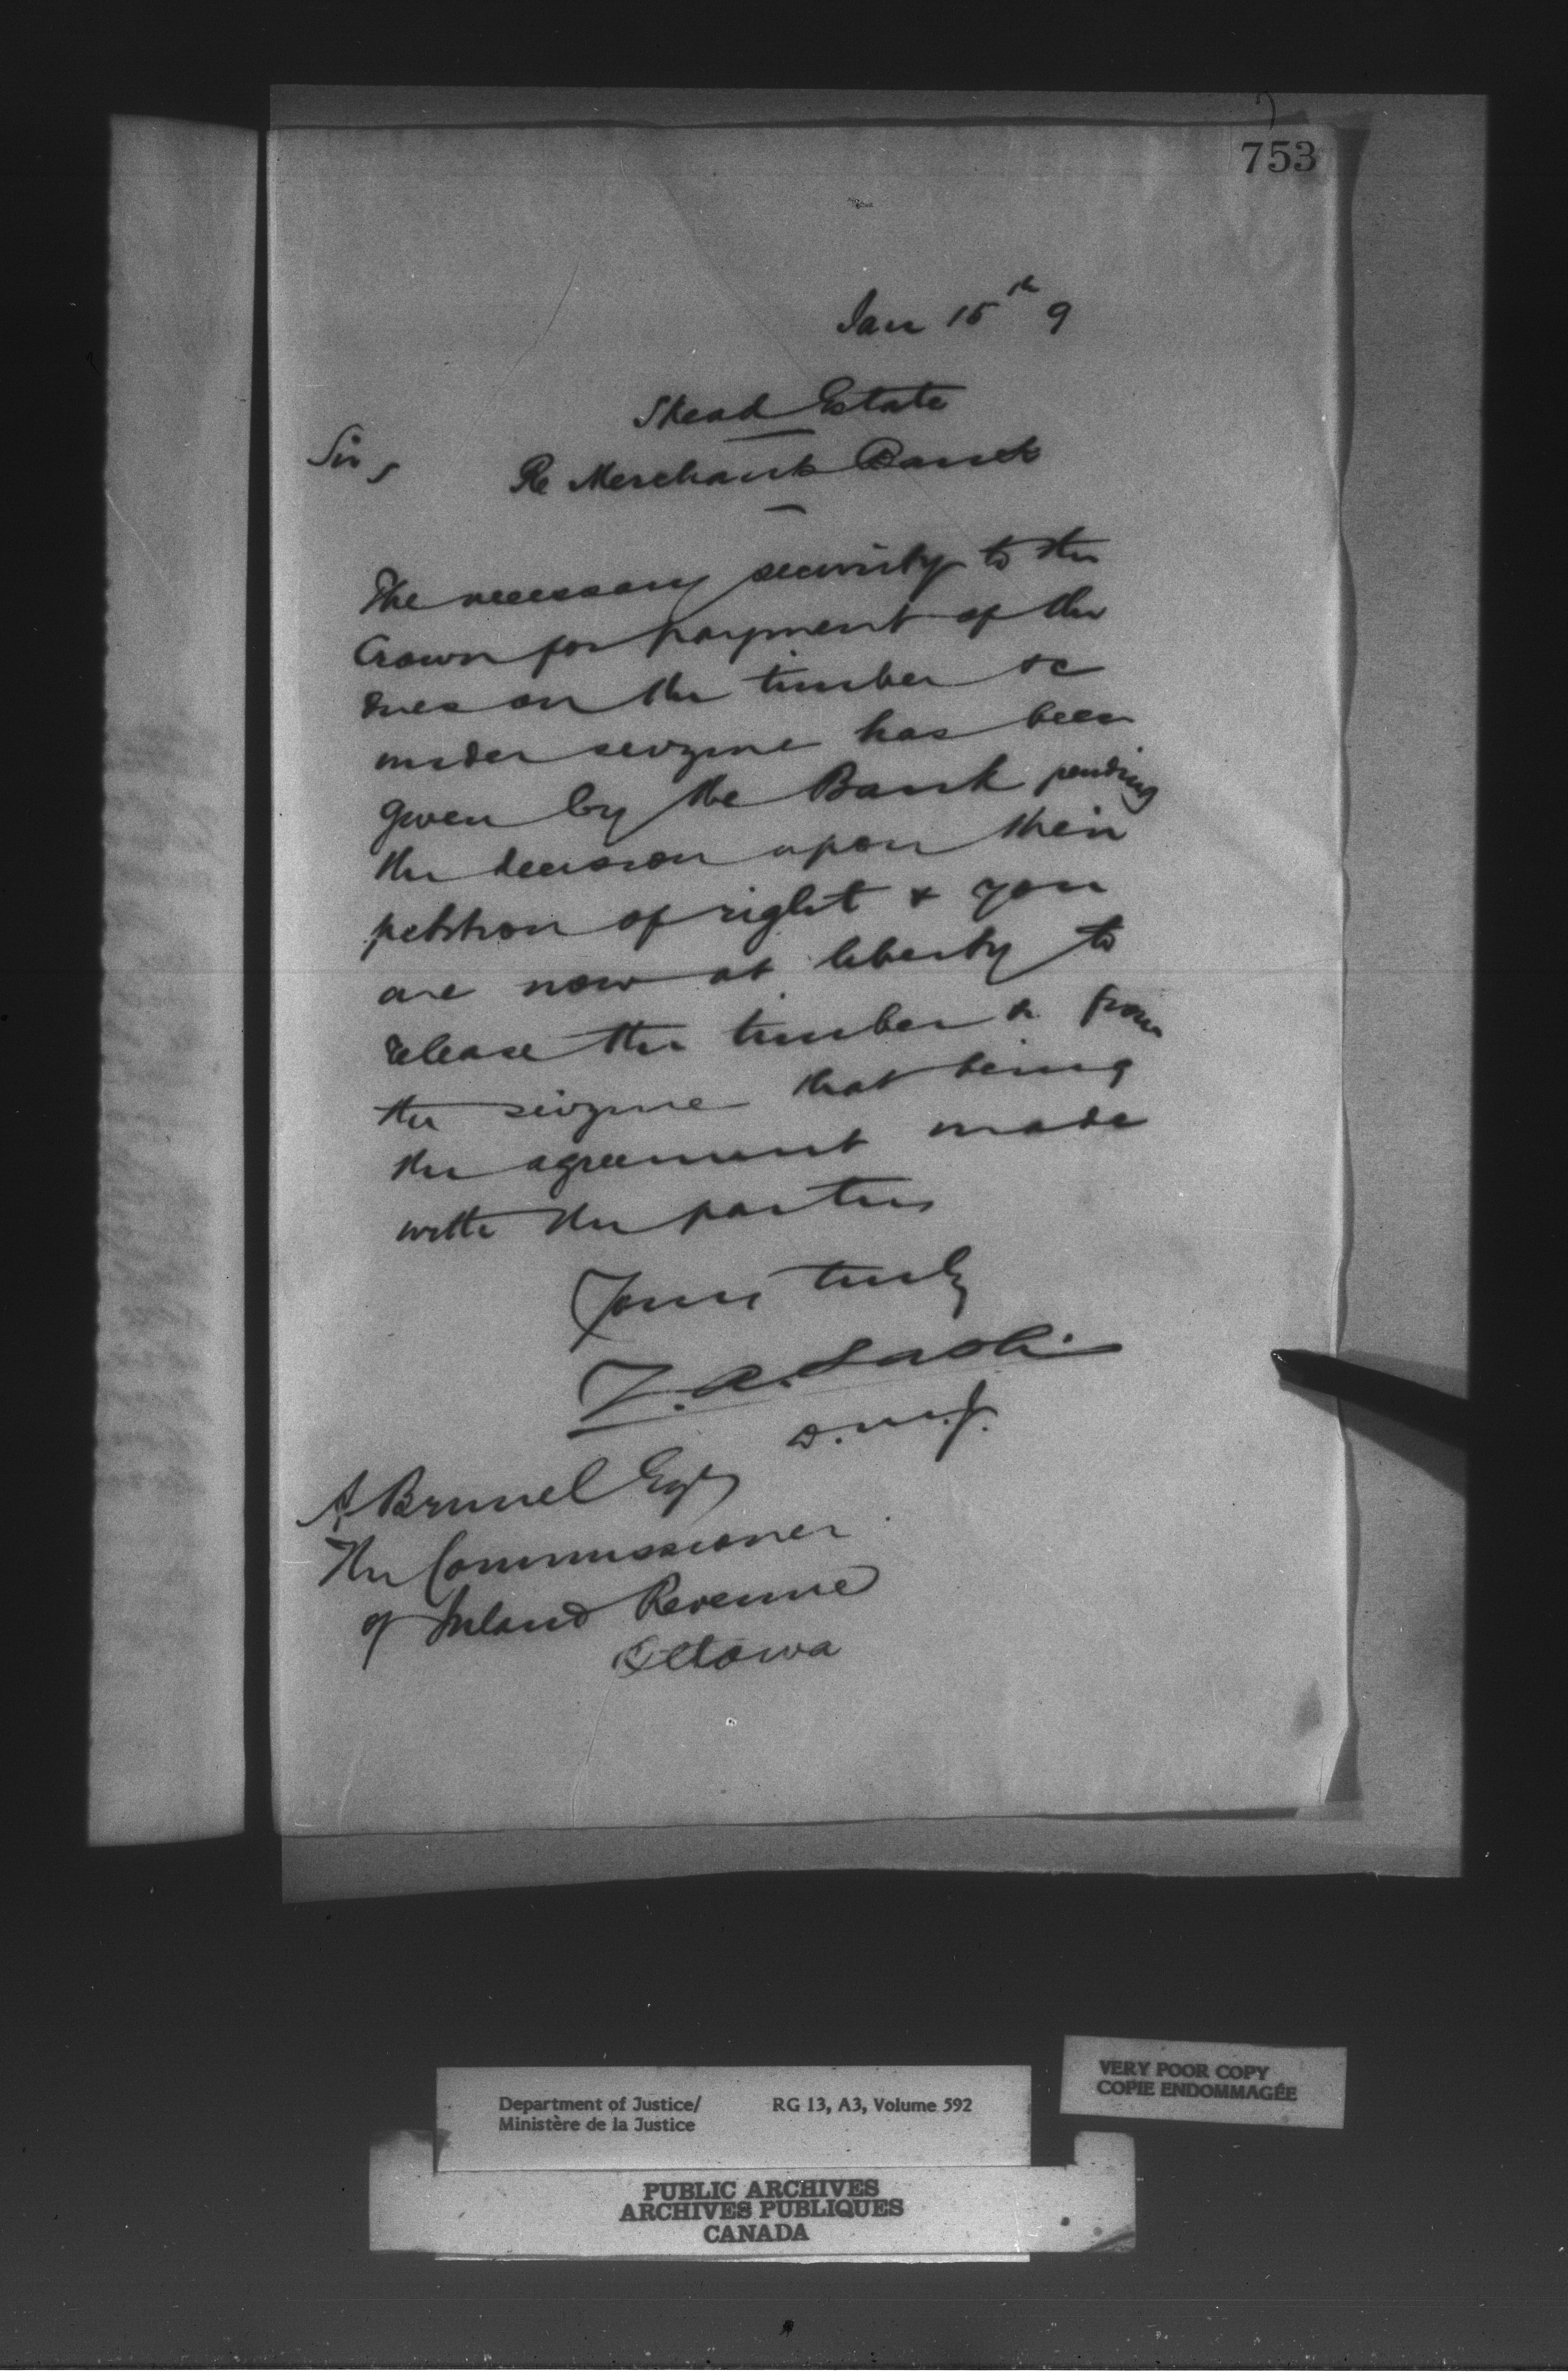 753
Jan 15th 9
Skead Estate
Sir,
Re Merchants Bank
The necessary security to the
Crown for payment of the
dues on the timber &c
under seizure has been
given by the Bank pending
the decision upon their
petition of right & you
are now at liberty to
release the timber &c from
the seizure that being
the agreement made
with the parties
Yours truly
Z. A. Lash
D.M.J.
A Brunel Esq
The Commissioner
of Inland Revenue
Ottawa
VERY POOR COPY
COPIE ENDOMMAGÉE
Department of Justice/ RG 13, A3, Volume 592
Ministère de la Justice
PUBLIC ARCHIVES
ARCHIVES PUBLIQUES
CANADA